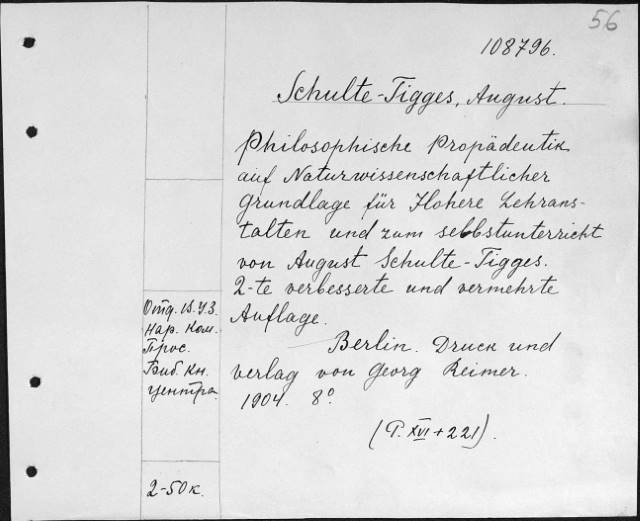 56
108796.
Schulte-Tigges, August.
Philosophische Propädeutik
auf Naturwissenschaftlicher
grundlage für Hohere Lehrans-
talten und zum selbstunterricht
von August Schulte-Tigges.
2-te verbesserte und vermehrte
Auflage.
Berlin. Druck und
verlag von Georg Reimer.
1904. 8º.
(P. XVI + 221).
Отд. В.У.З.
Нар. Ком.
Прос.
Биб. Кн.
центра.
2-50к.